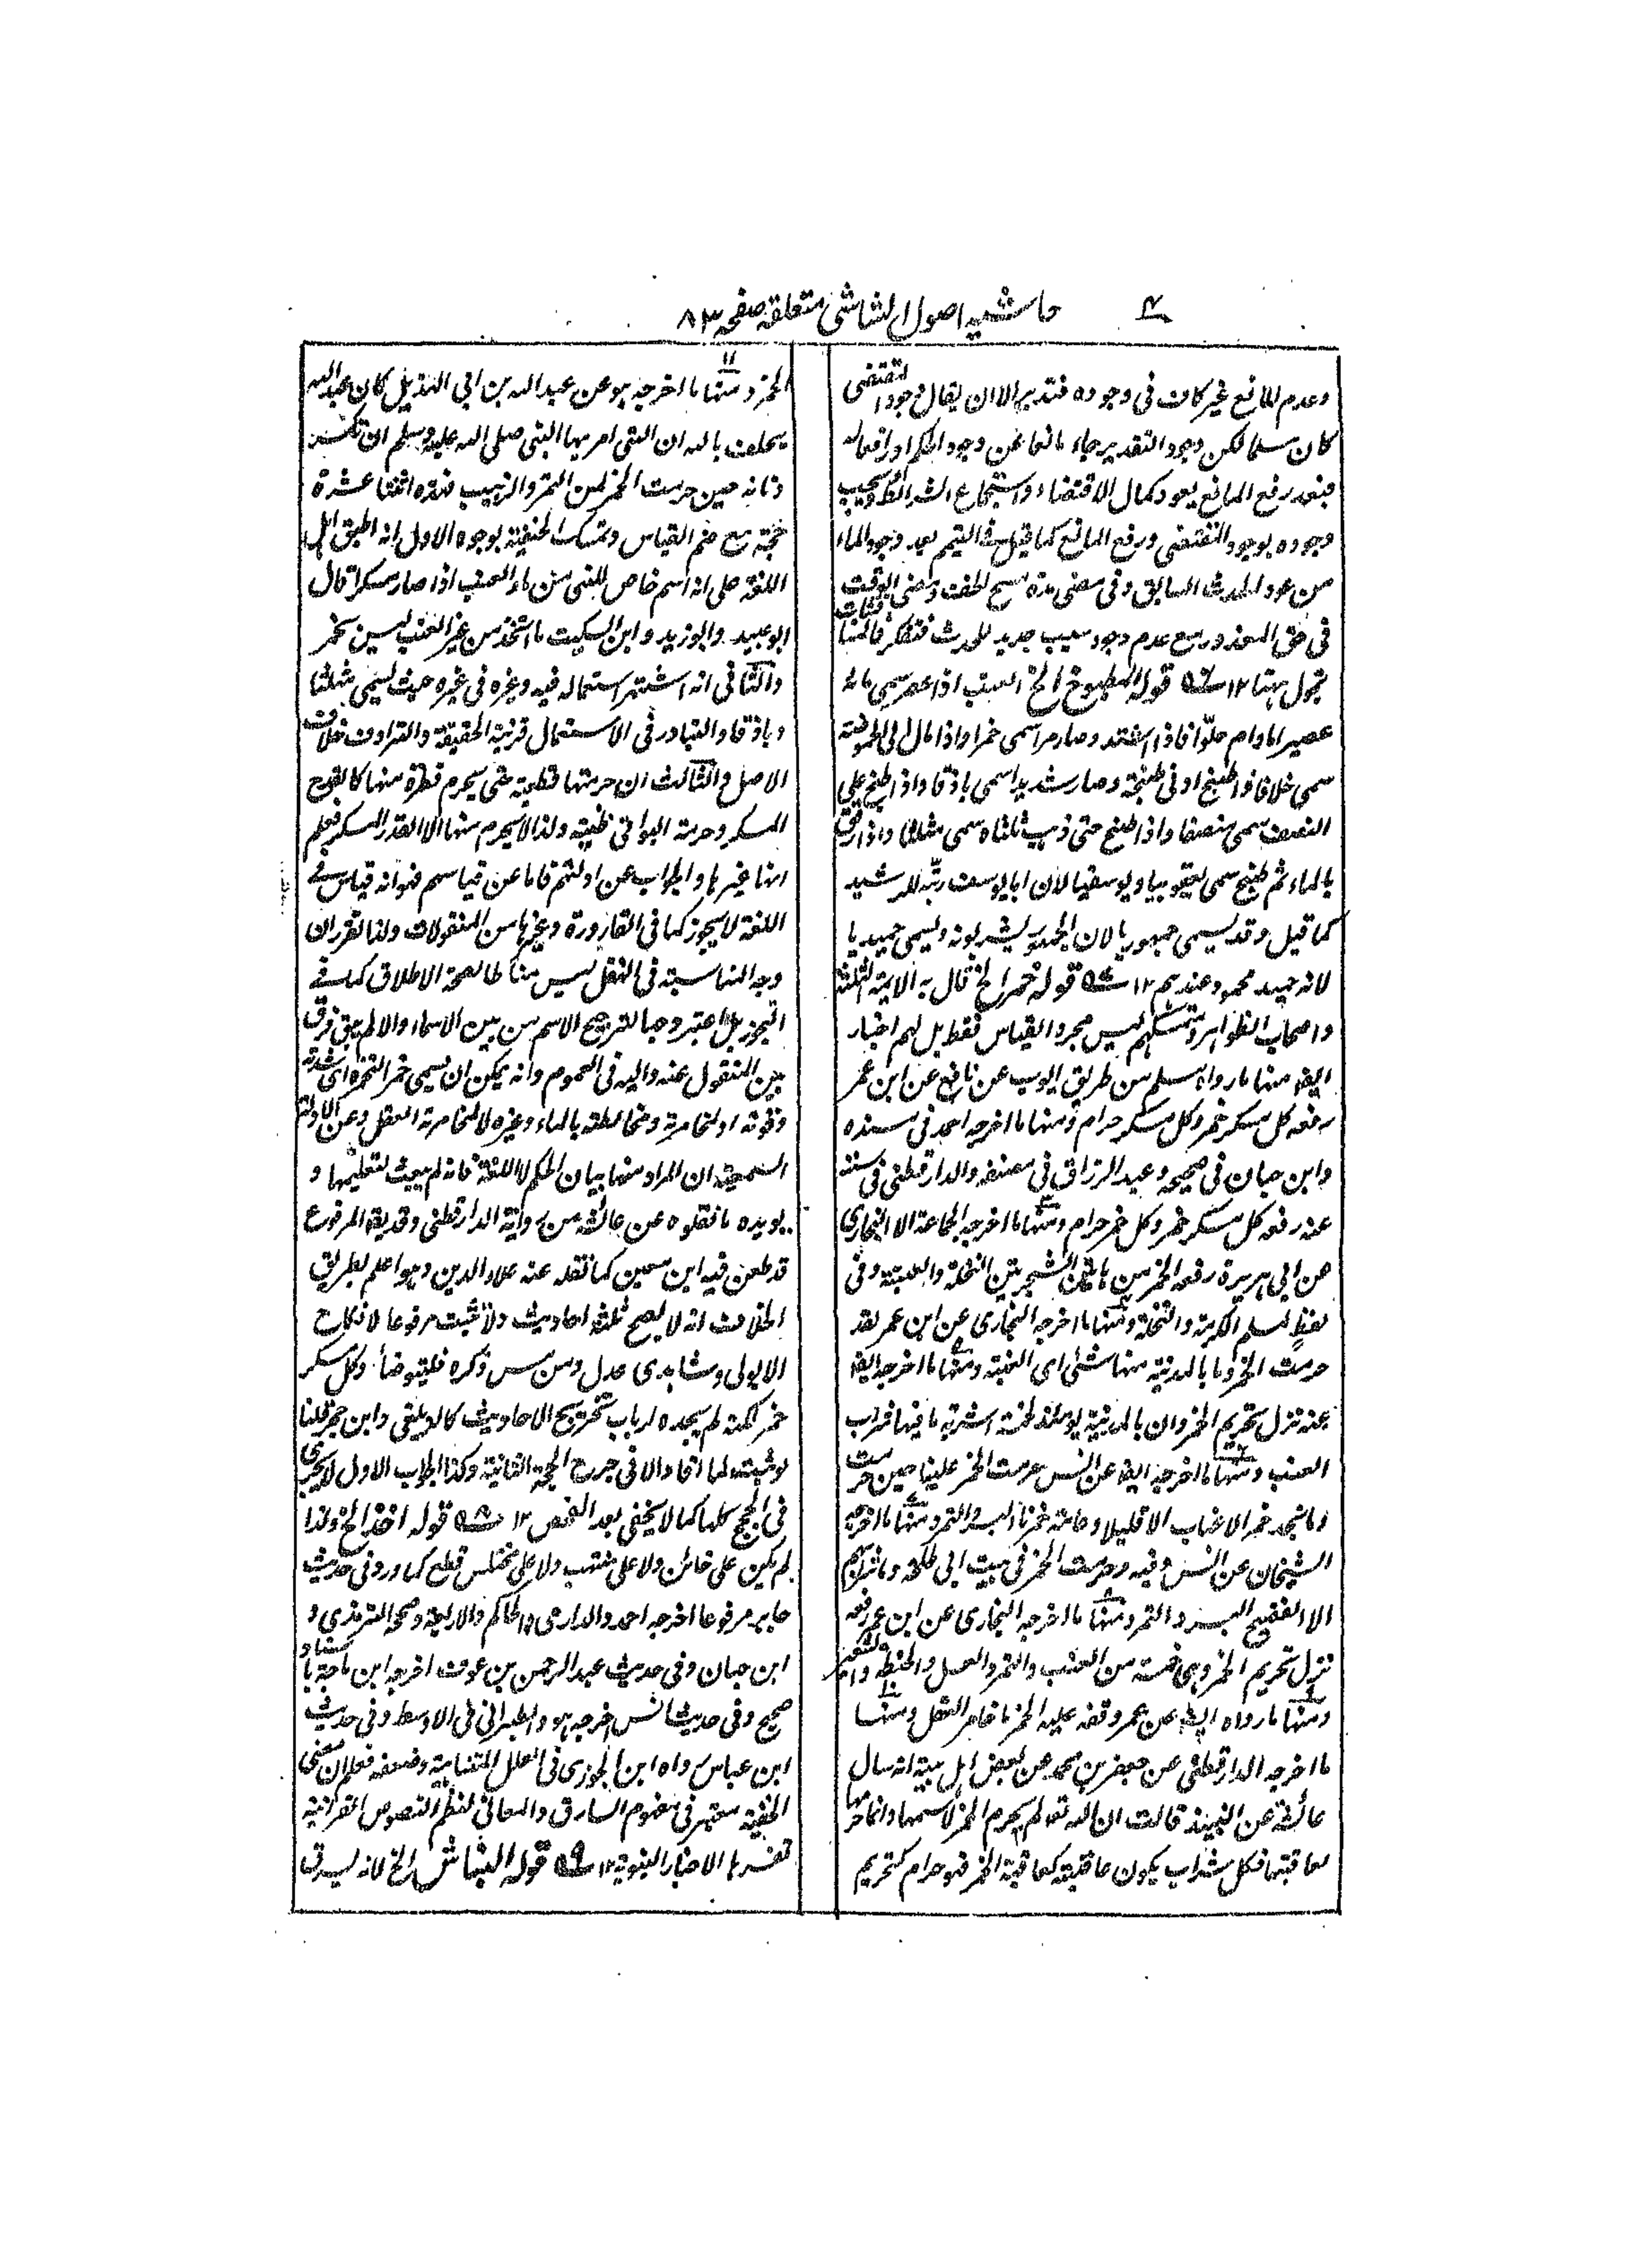 ٣
حاشيه اصول الشاشى متعلقه صفحه ٨٣
وعدم المانع غير كاف فى وجوده فتدبر الا ان يقال وجود المقتضى
كان سلما لكن وجود التقدير جاء مانعا عن وجود الحكم او رافعا له
فبعد رفع المانع يعود كمال الاقتضاء واستجماع الشرائط فيجب
وجوده بوجود المقتضى ورفع المانع كما قيل فى التيمم بعد وجود الماء
من عود الحدث السابق وفى مضى مدة مسح الخف ومضى الوقت
فى حق المعذور مع عدم وجود سبب جديد للحدث فتفكر
١٢ ٥٦ قوله المطبوخ الخ العنب اذا عصر يسمى مائه
عصيرا مادام حلوّا فاذا اشتد وصار مرا سمى خمرا واذا مال الى الحموضة
سمى خلا فاذا طبخ ادنى طبخة وصار شديدا سمى باذقا واذا طبخ على
النصف سمى منصفا واذا طبخ حتى ذهب ثلثاه سمى مثلثا واذا رقق
بالماء ثم طبخ سمى يعقوبيا ويوسفيا لان ابا يوسف رتبه للرشيد
كما قيل وقد يسمى جمهوريا لان الجمهور يشربونه ويسمى حميديا
لانه حميد محمود عندهم ١٢ ٥٧ قوله خمر الخ قال به الائمة الثلثة
واصحاب الظواهر ومتمسكهم ليس مجرد القياس فقط بل لهم اخبار
ايضا منها ما رواه مسلم من طريق ايوب عن نافع عن ابن عمر
رفعه كل مسكر خمر وكل مسكر حرام ومنها ما اخرجه احمد فى مسنده
وابن حبان فى صحيحه وعبد الرزاق فى مصنفه والدارقطنى فى سننه
عنه رفعه كل مسكر خمر وكل خمر حرام ومنها ما اخرجه الجماعة الا البخارى
عن ابى هريرة رفعه الخمر من هاتين الشجرتين النخلة والعنبة وفى
لفظ لمسلم الكرمة والنخلة ومنها ما اخرجه البخارى عن ابن عمر لقد
حرمت الخمر وما بالمدينة منها شئ اى العنبة ومنها ما اخرجه ايضا
عنه نزل تحريم الخمر وان بالمدينة يومئذ لخمسة اشربة ما فيها شراب
العنب ومنها ما اخرجه ايضا عن انس حرمت الخمر علينا حين حرمت
وما نجد خمر الاعناب الا قليلا وعامة خمرنا البسر والتمر ومنها ما اخرجه
الشيخان عن انس وفيه وحرمت الخمر فى بيت ابى طلحة وما شرابهم
الا الفضيخ البسر والتمر ومنها ما اخرجه البخارى عن ابن عمر رفعه
نزل تحريم الخمر وهى خمسة من العنب والتمر والعسل والحنطة والشعير
ومنها ما رواه ايضا عن عمر وقفه عليه الخمر ما خامر العقل ومنها
ما اخرجه الدارقطنى عن جعفر بن محمد عن بعض اهل بيته انه سال
عائشة عن النبيذ قالت ان الله تعالى لم يحرم الخمر لاسمها وانما حرمها
لعاقبتها فكل شراب يكون عاقبته كعاقبة الخمر فهو حرام كتحريم
الخمر ومنها ما اخرجه هو عن عبد الله بن ابى الهذيل كان عبد الله
يحلف بالله ان التى امر بها النبى صلى الله عليه وسلم ان تكسر
دنانه حين حرمت الخمر لمن التمر والزبيب فهذه اثنتا عشرة
حجة مع ضم القياس وتمسك الحنفية بوجوه الاول انه اطبق اهل
اللغة على انه اسم خاص للنى من ماء العنب اذا صار مسكرا قال
ابو عبيد وابو زيد وابن السكيت ما اتخذ من غير العنب ليس بخمر
والثانى انه اشتهر استعماله فيه وغيره فى غيره حيث يسمى مثلثا
وباذقا والتبادر فى الاستعمال قرينة الحقيقة والترادف خلاف
الاصل والثالث ان حرمتها قطعية حتى يحرم قطرة منها كالقدح
المسكر وحرمة البواقى ظنية ولذا لا يحرم منها الا القدر المسكر فعلم
انها غيرها والجواب عن ادلتهم فاما عن قياسهم فهو انه قياس فى
اللغة لا يجوز كما فى القارورة وغيرها من المنقولات ولذا تقرر ان
وجه المناسبة فى النقل ليس مناطا لصحة الاطلاق كما فى
التجوز بل اعتبر وجها لترجيح الاسم من بين الاسماء والا لم يبق فرق
بين المنقول عنه واليه فى العموم وانه يمكن ان يسمى خمر التخمره اى شدته
وقوته او لتخامره ومخالطته بالماء وغيره لا لمخامرته العقل وعن الادلة
السمعية ان المراد منها بيان الحكم لا اللغة فانه لم يبعث لتعليمها و
يويده ما نقلوه عن عائشة من رواية الدارقطنى وقد يقدح المرفوع
قد طعن فيه ابن معين كما نقله عنه علاء الدين وهو اعلم بطريق
الخلاف انه لا يصح ثلثة احاديث ولا تثبت مرفوعا لا نكاح
الا بولى وشاهدى عدل ومن مس ذكره فليتوضأ وكل مسكر
خمر لكنه لم يجده ارباب تخريج الاحاديث كالزيلعى وابن حجر قلنا
لو ثبت لما افاد الا فى جرح الحجة الثانية وكذا الجواب الاول لا يجرى
فى الحجج كلها كما لا يخفى بعد الفحص ١٢ ٥٨ قوله اخذ الخ ولذا
لم يكن على خائن ولا على منتهب ولا على مختلس قطع كما ورد فى حديث
جابر مرفوعا اخرجه احمد والدارمى والحاكم والاربعة وصححه الترمذى و
ابن حبان وفى حديث عبد الرحمن بن عوف اخرجه ابن ماجة باسناد
صحيح وفى حديث انس اخرجه هو والطبرانى فى الاوسط وفى حديث
ابن عباس رواه ابن الجوزى فى العلل المتناهية وضعفه فعلم ان معنى
الخفية معتبر فى مفهوم السارق والمعانى لنظم النصوص القرآنية
تفسرها الاخبار النبوية ١٢ ٥٩ قوله النباش الخ لانه يسرق